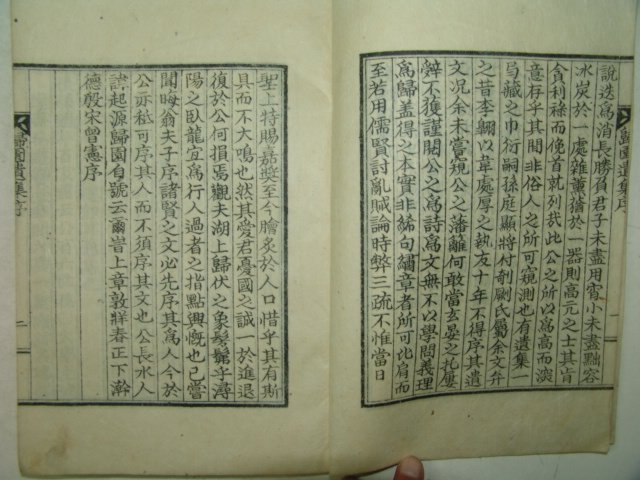 歸園遺集序
說迭爲消長勝負君子未盡用宵小未盡黜容
冰炭於一處雜薰蕕於一器則高元之士其肯
貪利祿而俛首就列哉此公之所以爲高而淡
意存乎其間非俗人之所可窺測也有遺集一
局藏之巾衍嗣孫庭顯將付剞劂氏屬余文弁
之昔李翶以韋處厚之執友十年不得序其遺
文況余未嘗窺公之藩籬何敢當玄晏之托屢
辭不獲謹閱公之爲詩爲文無不以學問義理
爲歸盖得之本實非絺句繡章者所可比肩而
至若用儒賢討亂賊論時弊三疏不惟當日
聖上特賜嘉奬至今膾炙於人口惜乎其有斯
具而不大鳴也然其愛君憂國之誠一於進退
復於公何損焉觀夫湖上歸伏之象髣髴乎潯
陽之臥龍宜爲行人過者之指點興慨也已嘗
聞晦翁夫子序諸賢之文必先序其爲人今於
公亦秪可序其人而不須序其文也公長水人
諱起源歸園自號云爾旹上章敦牂春正下澣
德殷宋曾憲序
歸園遺集序
二